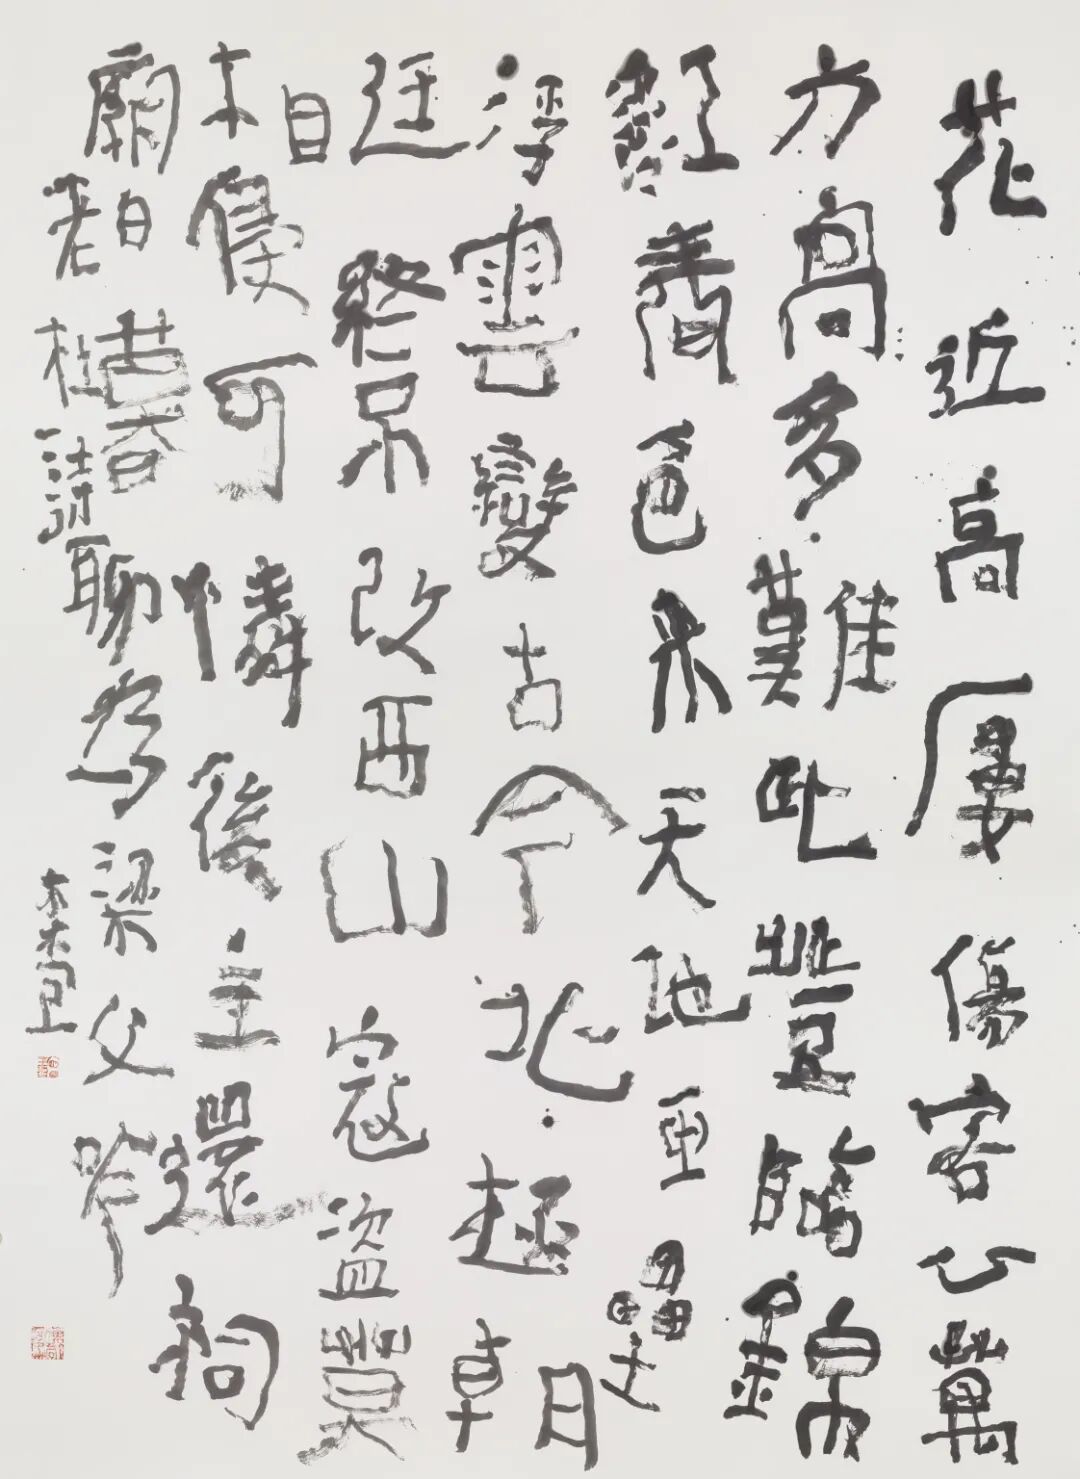 花近高樓傷客心萬
方高多難此登臨錦
江春色來天地玉壘
浮雲變古今北極朝
廷終不改西山寇盜莫
相侵可憐後主還祠
廟日暮聊為梁父吟
老杜詩